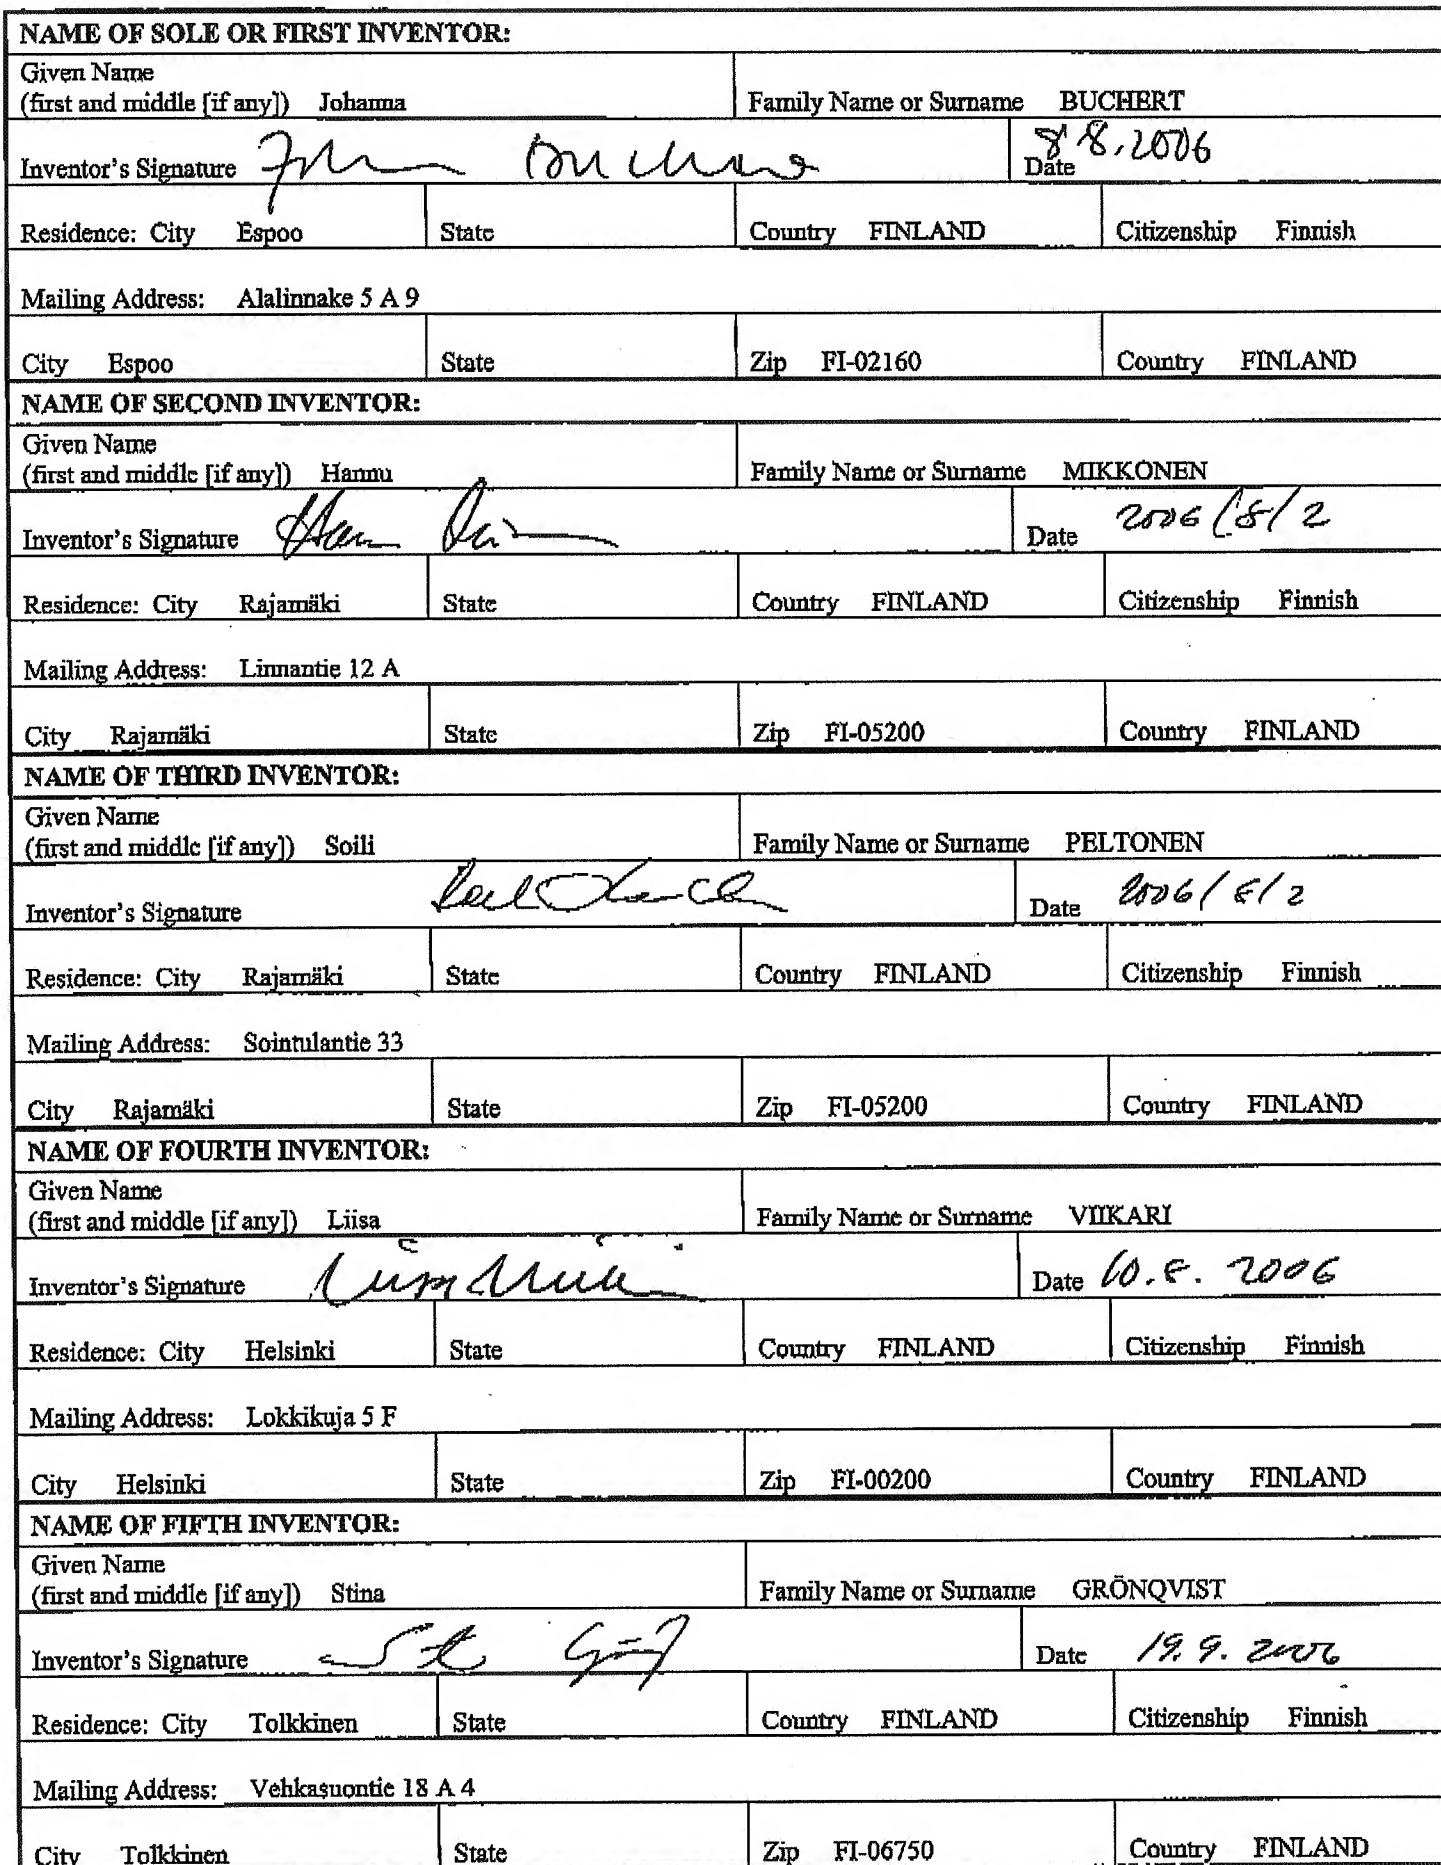 NAME OF SOLE OR FIRST INVENTOR:
Given Name
(first and middle [if any]) Johanna Family Name or Surname BUCHERT
Inventor's Signature Date 8 8.2006
Residence: City Espoo State Country FINLAND Citizenship Finnish
Mailing Address: Alalinnake 5 A 9
City Espoo State Zip FI-02160 Country FINLAND
NAME OF SECOND INVENTOR:
Given Name
(first and middle [if any]) Hannu Family Name or Surname MIKKONEN
Inventor's Signature Date 2006/8/2
Residence: City Rajamäki State Country FINLAND Citizenship Finnish
Mailing Address: Linnantie 12 A
City Rajamäki State Zip FI-05200 Country FINLAND
NAME OF THIRD INVENTOR:
Given Name
(first and middle [if any]) Soili Family Name or Surname PELTONEN
Inventor's Signature Date 2006/8/2
Residence: City Rajamäki State Country FINLAND Citizenship Finnish
Mailing Address: Sointulantie 33
City Rajamäki State Zip FI-05200 Country FINLAND
NAME OF FOURTH INVENTOR:
Given Name
(first and middle [if any]) Liisa Family Name or Surname VIIKARI
Inventor's Signature Date 10.8. 2006
Residence: City Helsinki State Country FINLAND Citizenship Finnish
Mailing Address: Lokkikuja 5 F
City Helsinki State Zip FI-00200 Country FINLAND
NAME OF FIFTH INVENTOR:
Given Name
(first and middle [if any]) Stina Family Name or Surname GRÖNQVIST
Inventor's Signature Date 19.9. 2006
Residence: City Tolkkinen State Country FINLAND Citizenship Finnish
Mailing Address: Vehkasuontie 18 A 4
City Tolkkinen State Zip FI-06750 Country FINLAND